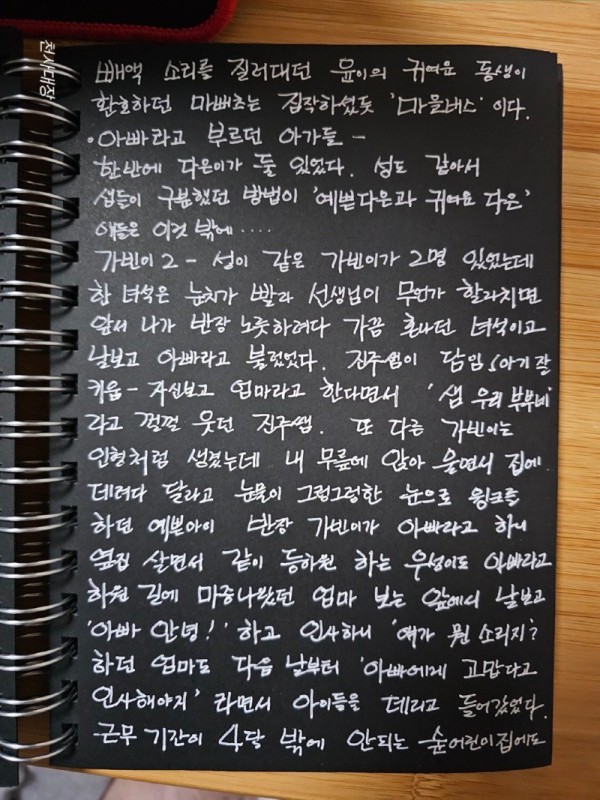 천사대장
빼액 소리를 질러대던 윤이의 귀여운 동생이
환호하던 마뻐츠는 짐작하셨듯 '마믈내스' 이다.
·아빠라고 부르던 아가들 -
한반에 다은이가 둘 있었다. 성도 같아서
샘들이 구분했던 방법이 '예쁜다은과 귀여운 다은'
얘들은 이것 밖에 ····
가빈이 2 - 성이 같은 가빈이가 2명 있었는데
한 녀석은 눈치가 빨라 선생님이 무언가 할라치면
앞서 나가 반장 노릇하려다 가끔 혼나던 녀석이고
날보고 아빠라고 불렀었다. 진주쌤이 담임 (아기 잘
키움 - 자신보고 엄마라고 한다면서 '샘 우리 부부네'
라고 껄껄 웃던 진주쌤. 또 다른 가빈이는
인형처럼 생겼는데 내 무릎에 앉아 울면서 집에
데려다 달라고 눈물이 그렁그렁한 눈으로 윙크를
하던 예쁜아이 반장 가빈이가 아빠라고 하니
옆집 살면서 같이 등하원 하는 우성이도 아빠라고
하원 길에 마중나왔던 엄마 보는 앞에서 날보고
'아빠 안녕!' 하고 인사하니 '얘가 뭔 소리지?
하던 엄마도 다음 날부터 '아빠에게 고맙다고
인사해야지' 라면서 아이들을 데리고 들어갔었다.
근무 기간이 4달 밖에 안되는 숲어린이집에도